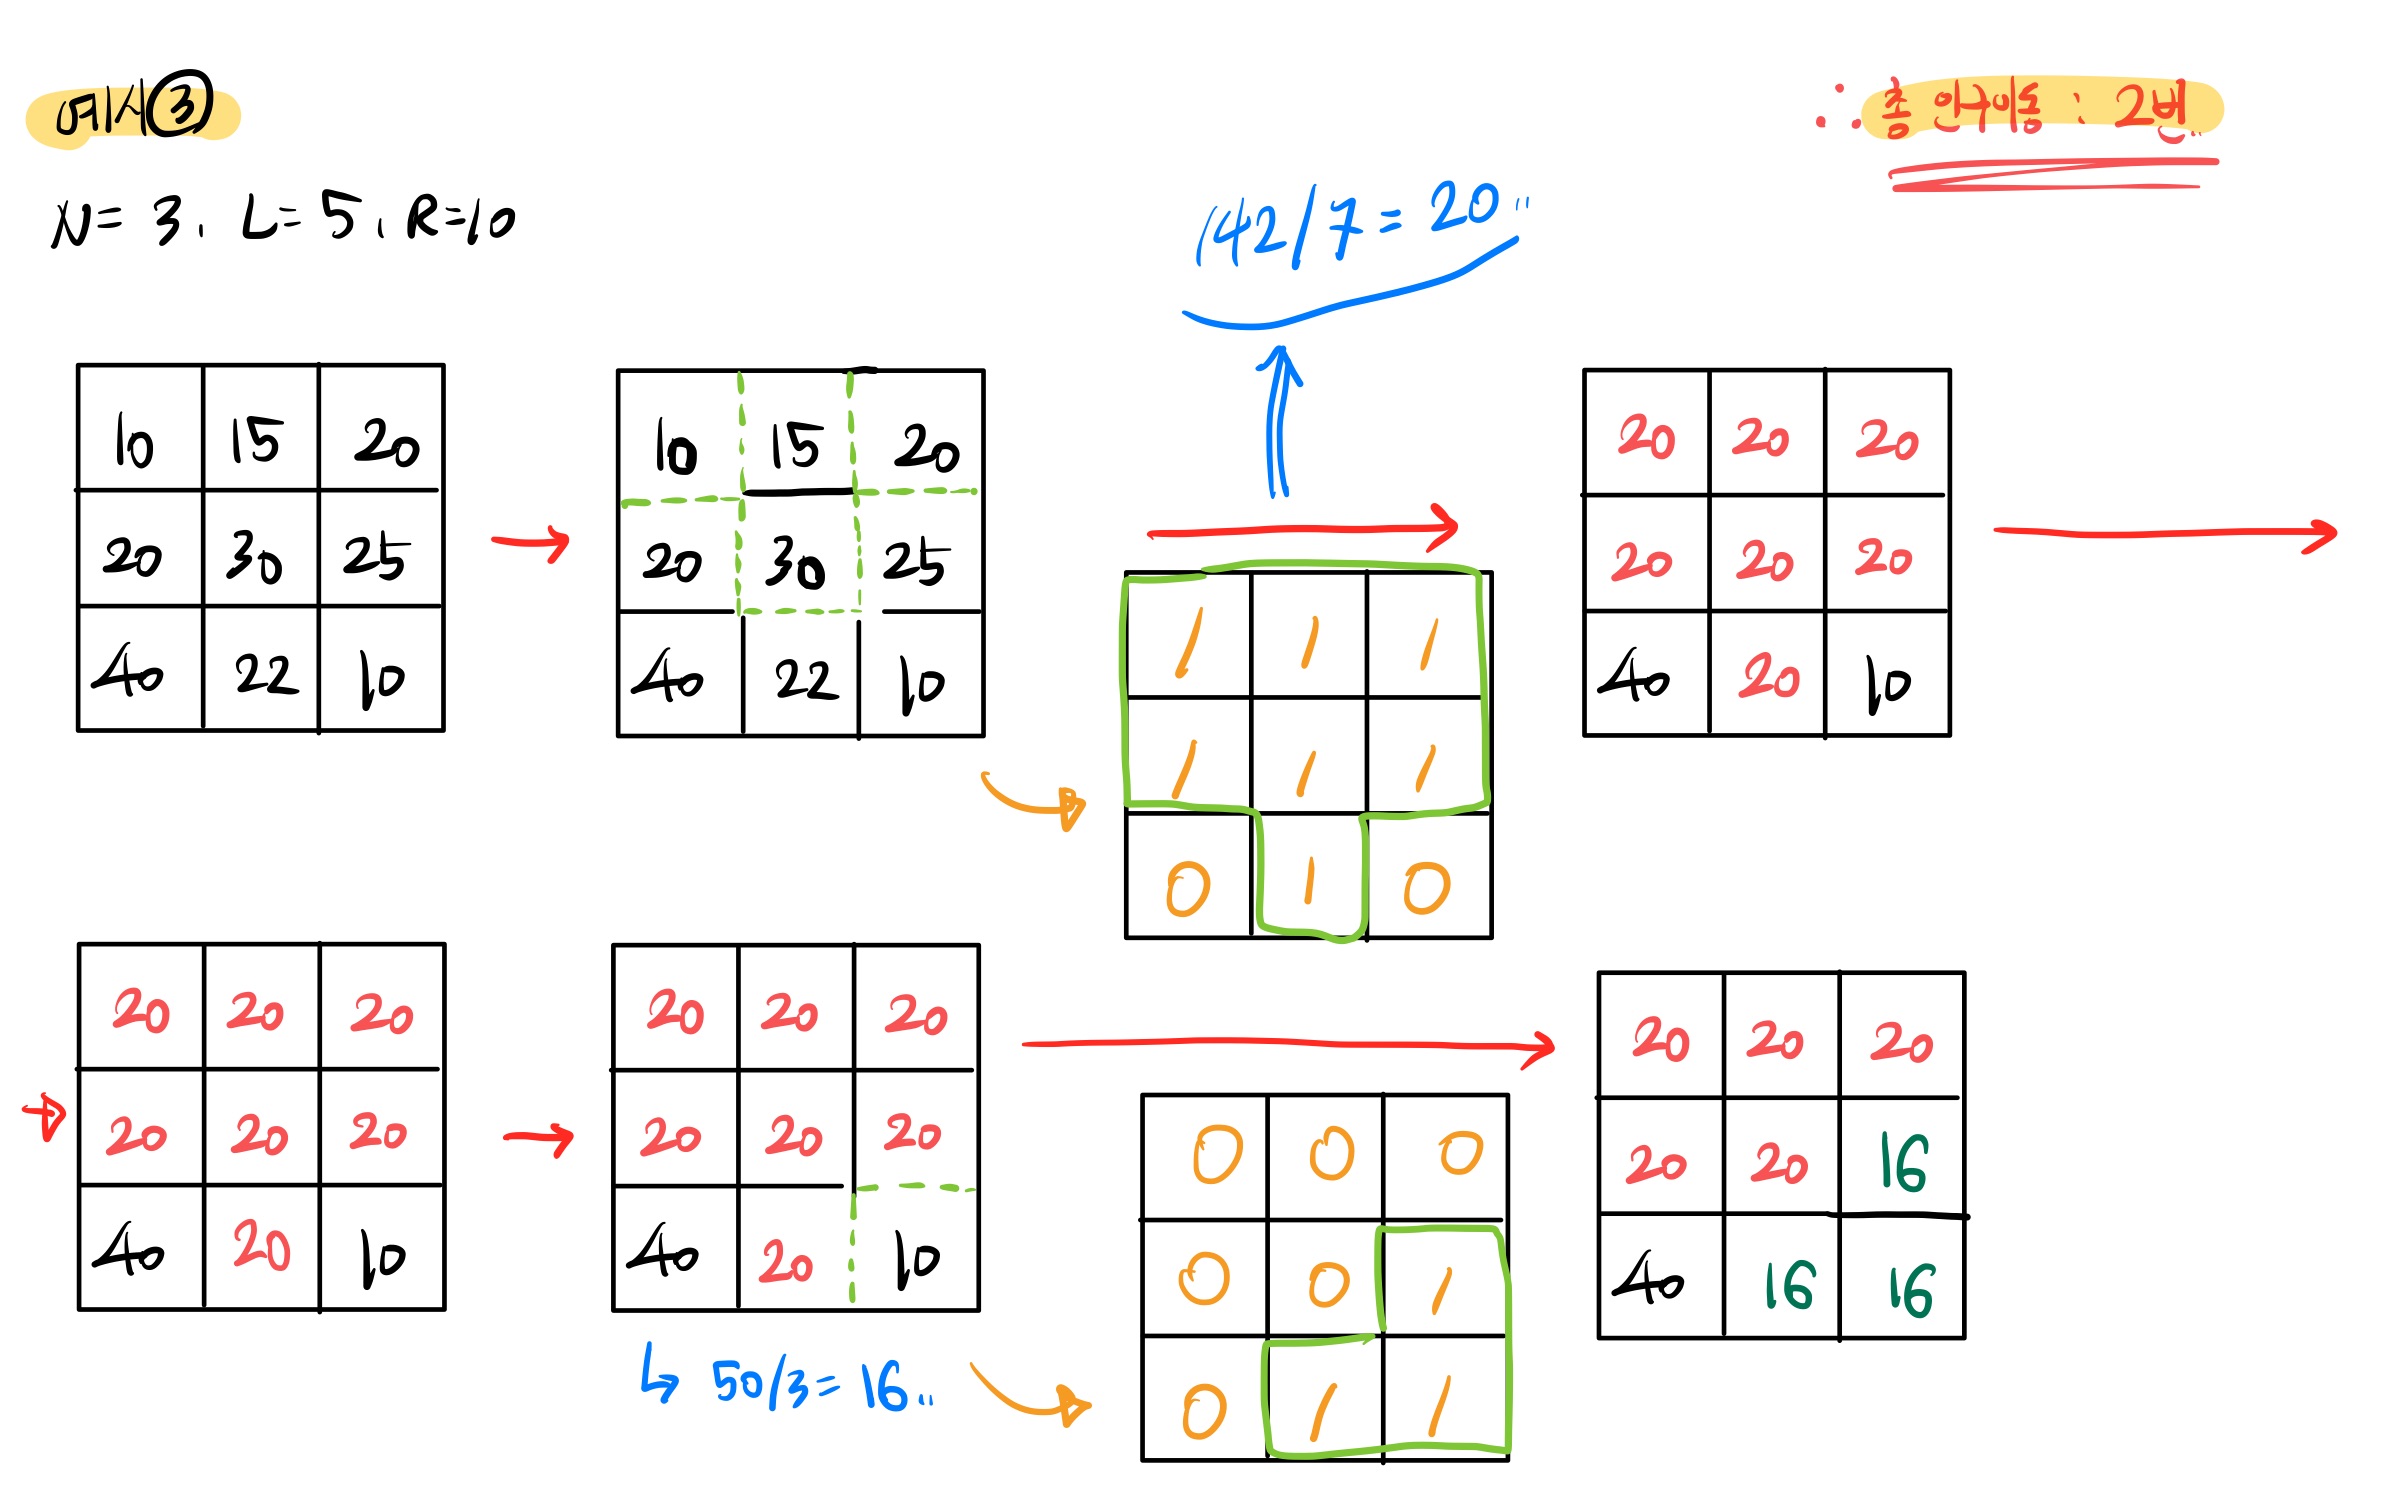 예시③
∴ 총 인구이동 : 2번..
N= 3, L=5, R=10
142/7=20..
10 15 20
20 30 25
40 22 10
10 15 20
20 30 25
40 22 10
1 1 1
1 1 1
0 1 0
20 20 20
20 20 20
40 20 10
20 20 20
20 20 20
40 20 10
20 20 20
20 20 20
40 20 10
50/3=16..
0 0 0
0 0 1
0 1 1
20 20 20
20 20 16
40 16 16